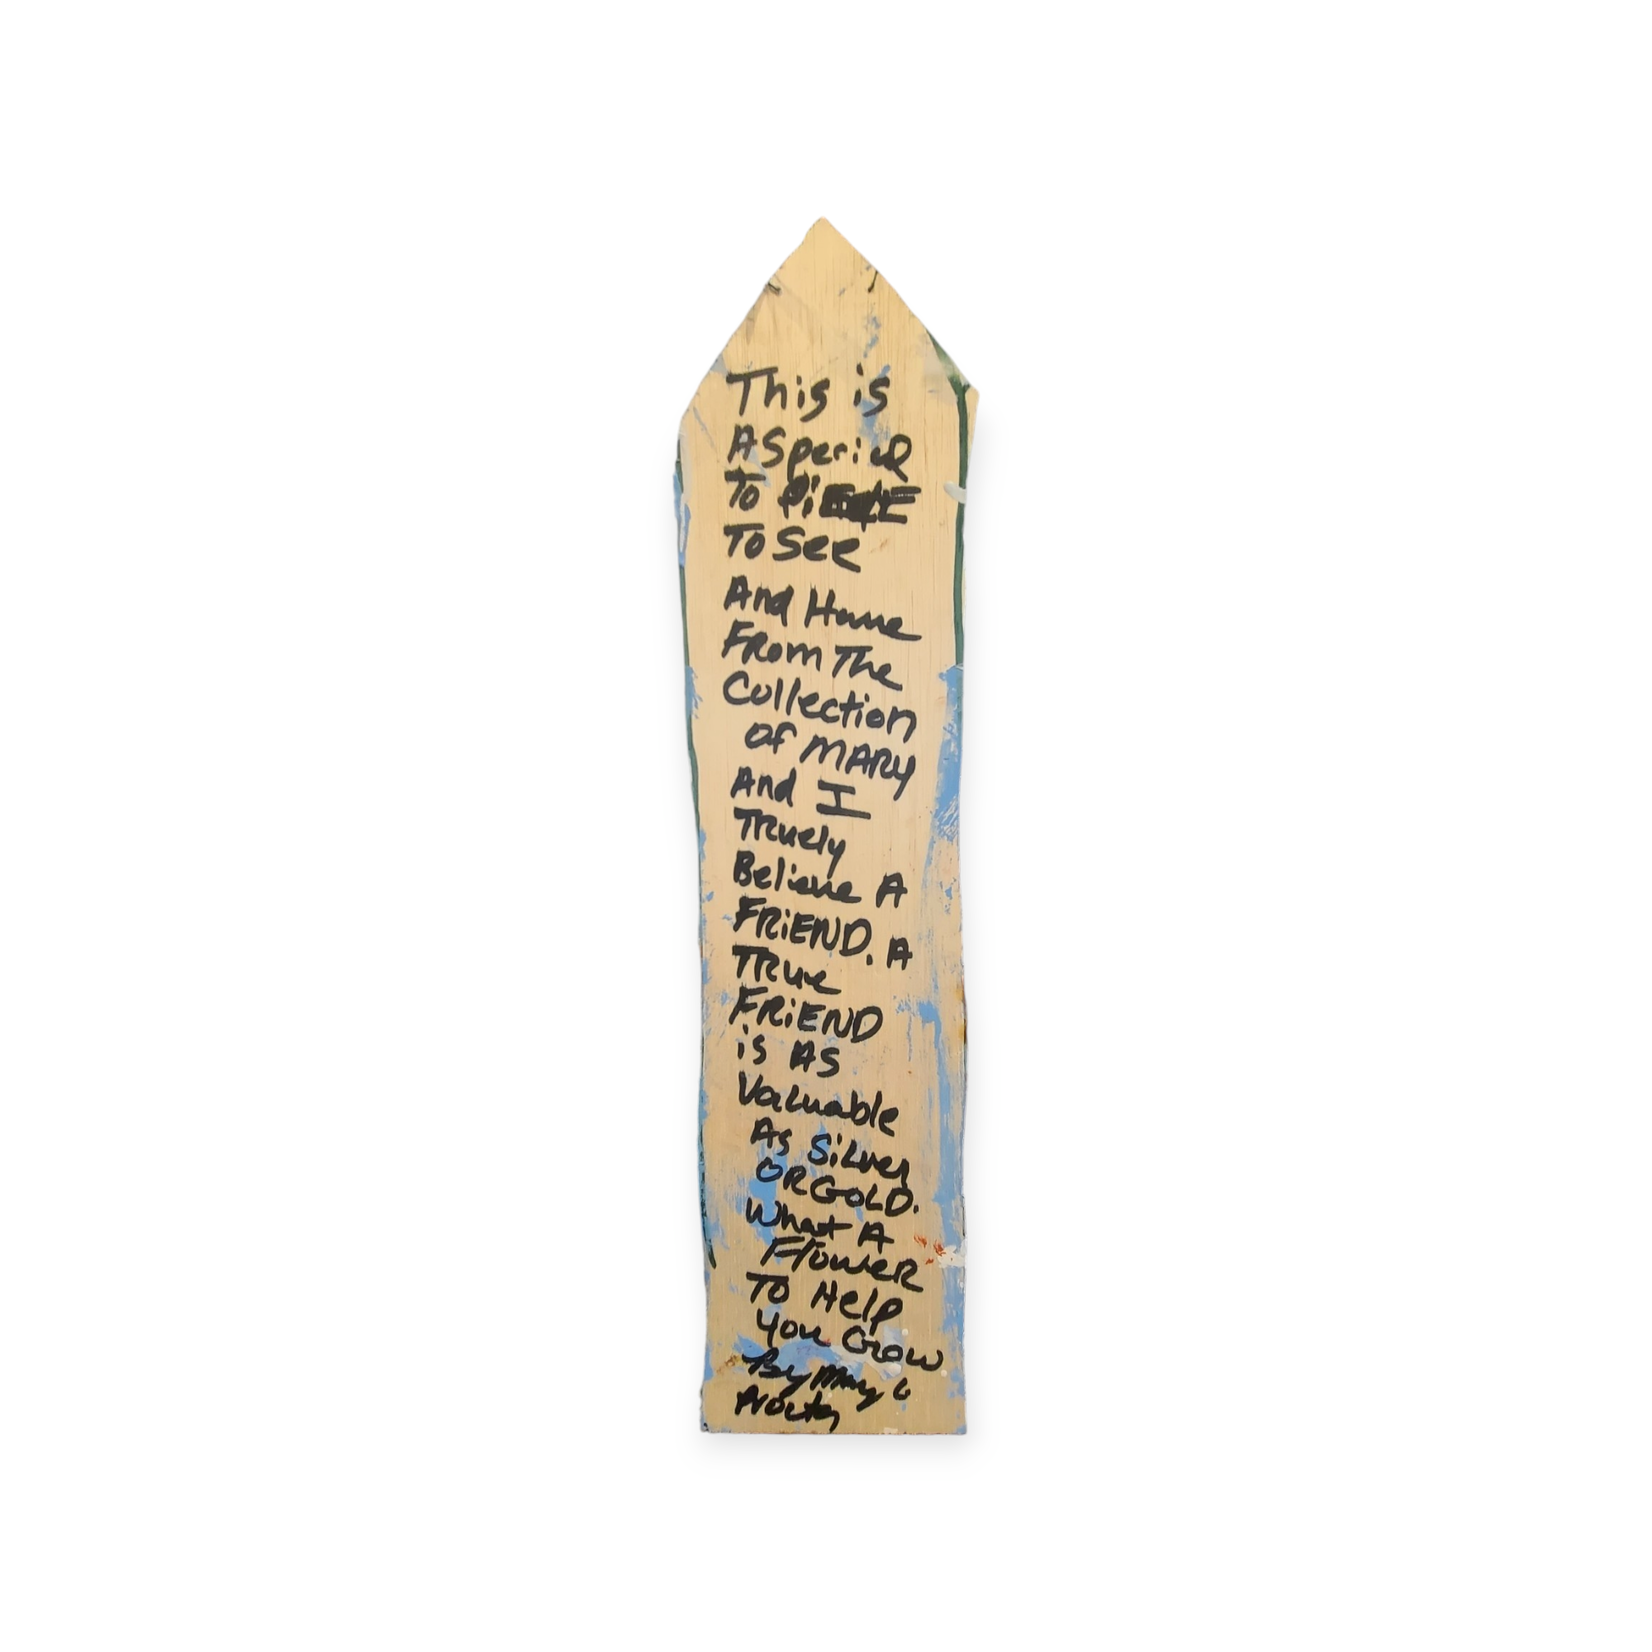 This is
A Speciel
To PiECE
To See
And Have
FRom The
Collection
of MARY
And I
TRuely
Believe A
FRiEND. A
TRue
FRiEND
is AS
Valuable
As SiLver
OR GOLD.
What A
Flower
To Help
You Grow
By Mary L
Proctor